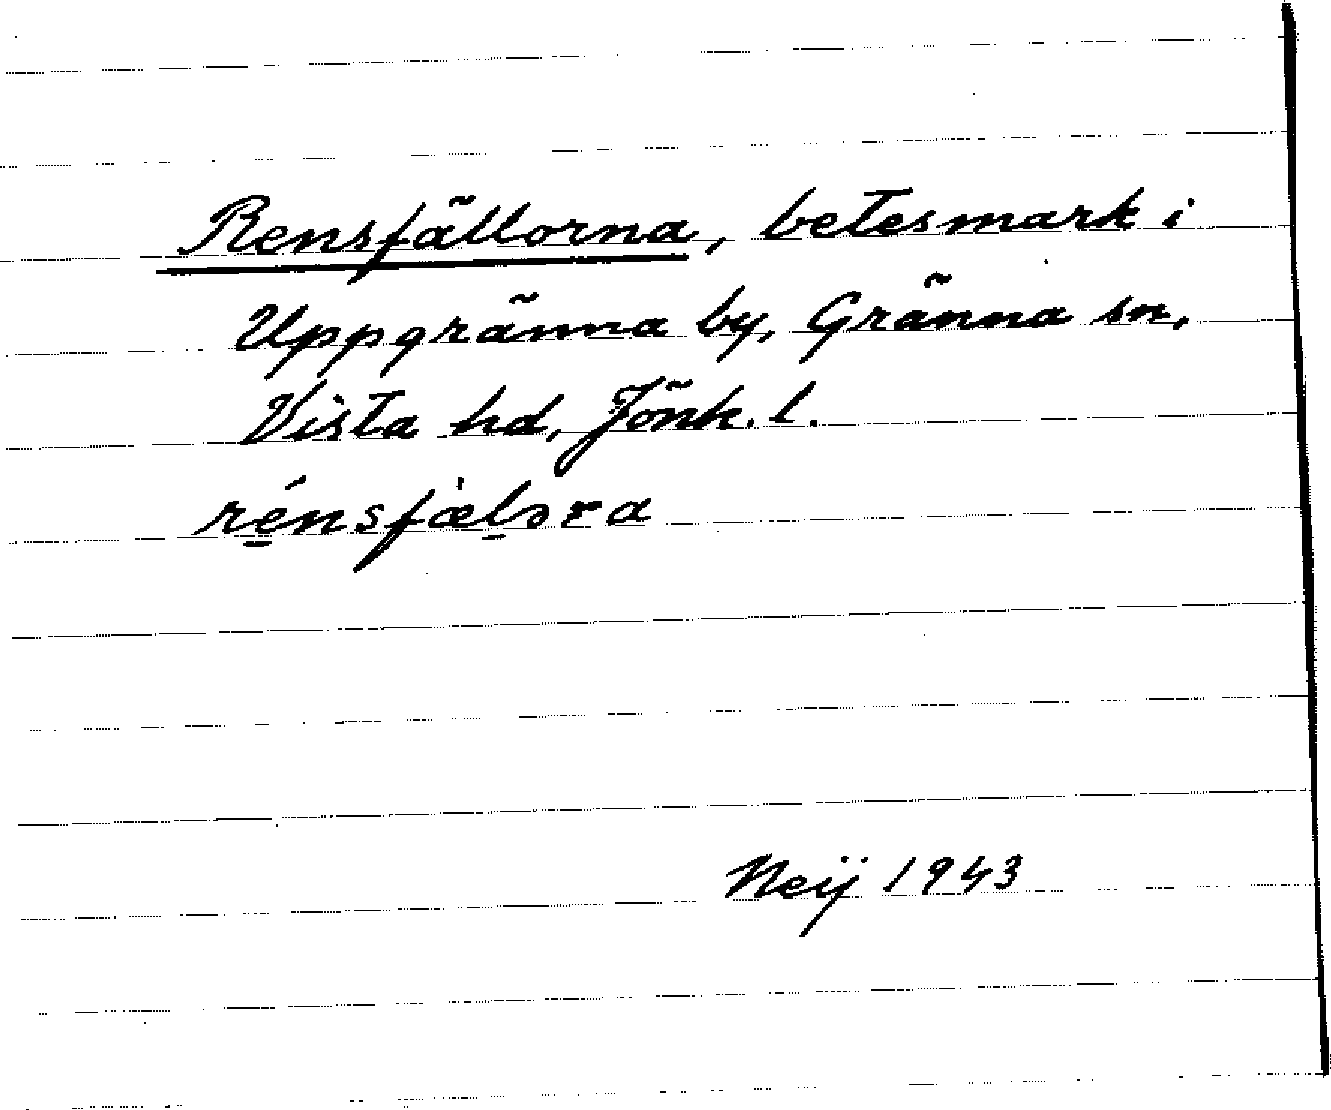 Rensfällorna, betesmark i
Uppgränna by, Gränna sn,
Vista hd, Jönk. l.
rénsfæ̀lǝra
Neij 1943